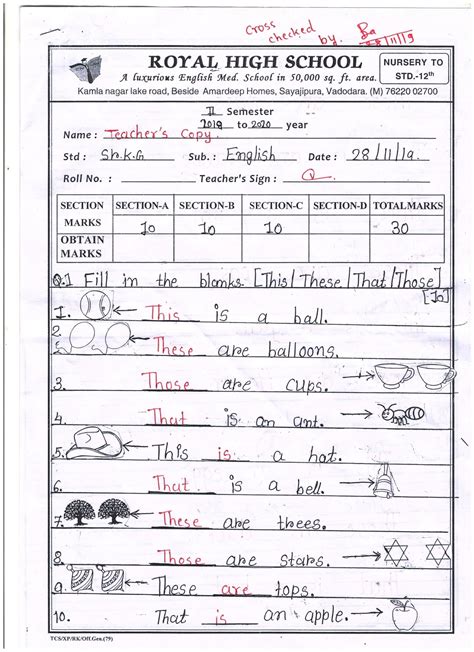 Cross checked by. Ba
28/11/19
ROYAL HIGH SCHOOL
A luxurious English Med. School in 50,000 sq. ft. area.
NURSERY TO STD.-12th
Kamla nagar lake road, Beside Amardeep Homes, Sayajipura, Vadodara. (M) 76220 02700
II Semester
2019 to 2020 year
Name : Teacher's Copy.
Std : Sr.k.G Sub. : English Date : 28/11/19.
Roll No. : Teacher's Sign :
SECTION SECTION-A SECTION-B SECTION-C SECTION-D TOTAL MARKS
MARKS 10 10 10 30
OBTAIN MARKS
Q.1 Fill in the blanks. [This/These/That/Those]
[10]
1. This is a ball.
2. These are balloons.
3. Those are cups.
4. That is an ant.
5. This is a hat.
6. That is a bell.
7. These are trees.
8. Those are stars.
9. These are tops.
10. That is an apple.
TCS/XP/RK/Off.Gen.(79)